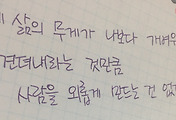 삶의 무게가 나보다 가벼우
견뎌내라는 것만큼
사람을 외롭게 만드는 건 없다